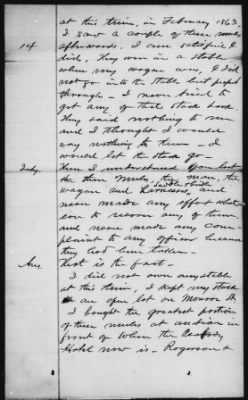 at this time, in February 1863
I saw a couple of these mules
afterwards. I am satisfied I
did, they were in a stable
when my wagon was, I did
not go into the stable but peeped
through - I never tried to
get any of that stock back
They said nothing to me
and I thought I would
say nothing to them - I
would let the stock go -
14.
Intg.
Then I understand you lost
the three mules, the man, the
wagon and harness, saddle & bridle, and
never made any effort what
ever to recover any of them
and never made any com-
plaint to any officer because
they had been taken -
Ans.
That is the fact -
I did not own any stable
at this time, I kept my stock
in an open lot on Monroe St
I bought the greatest portion
of these mules at auction in
front of where the Peabody
Hotel now is - Rogerson &